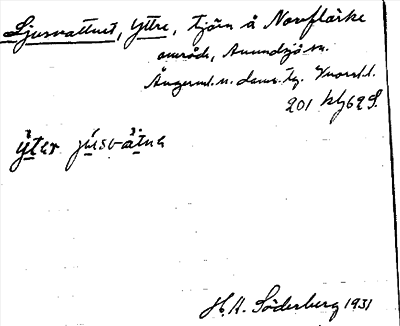 Ljusvattnet, Yttre, tjärn å Norrflärke
område, Anundsjö sn.
Ångerml. n. doms. tg.
201 klg 62 S.
ýter júsvàtnα
H. A. Söderberg 1931